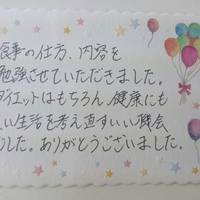 食事の仕方、内容を
勉強させていただきました。
ダイエットはもちろん健康にも
い生活を考え直すいい機会
した。ありがとうございました。